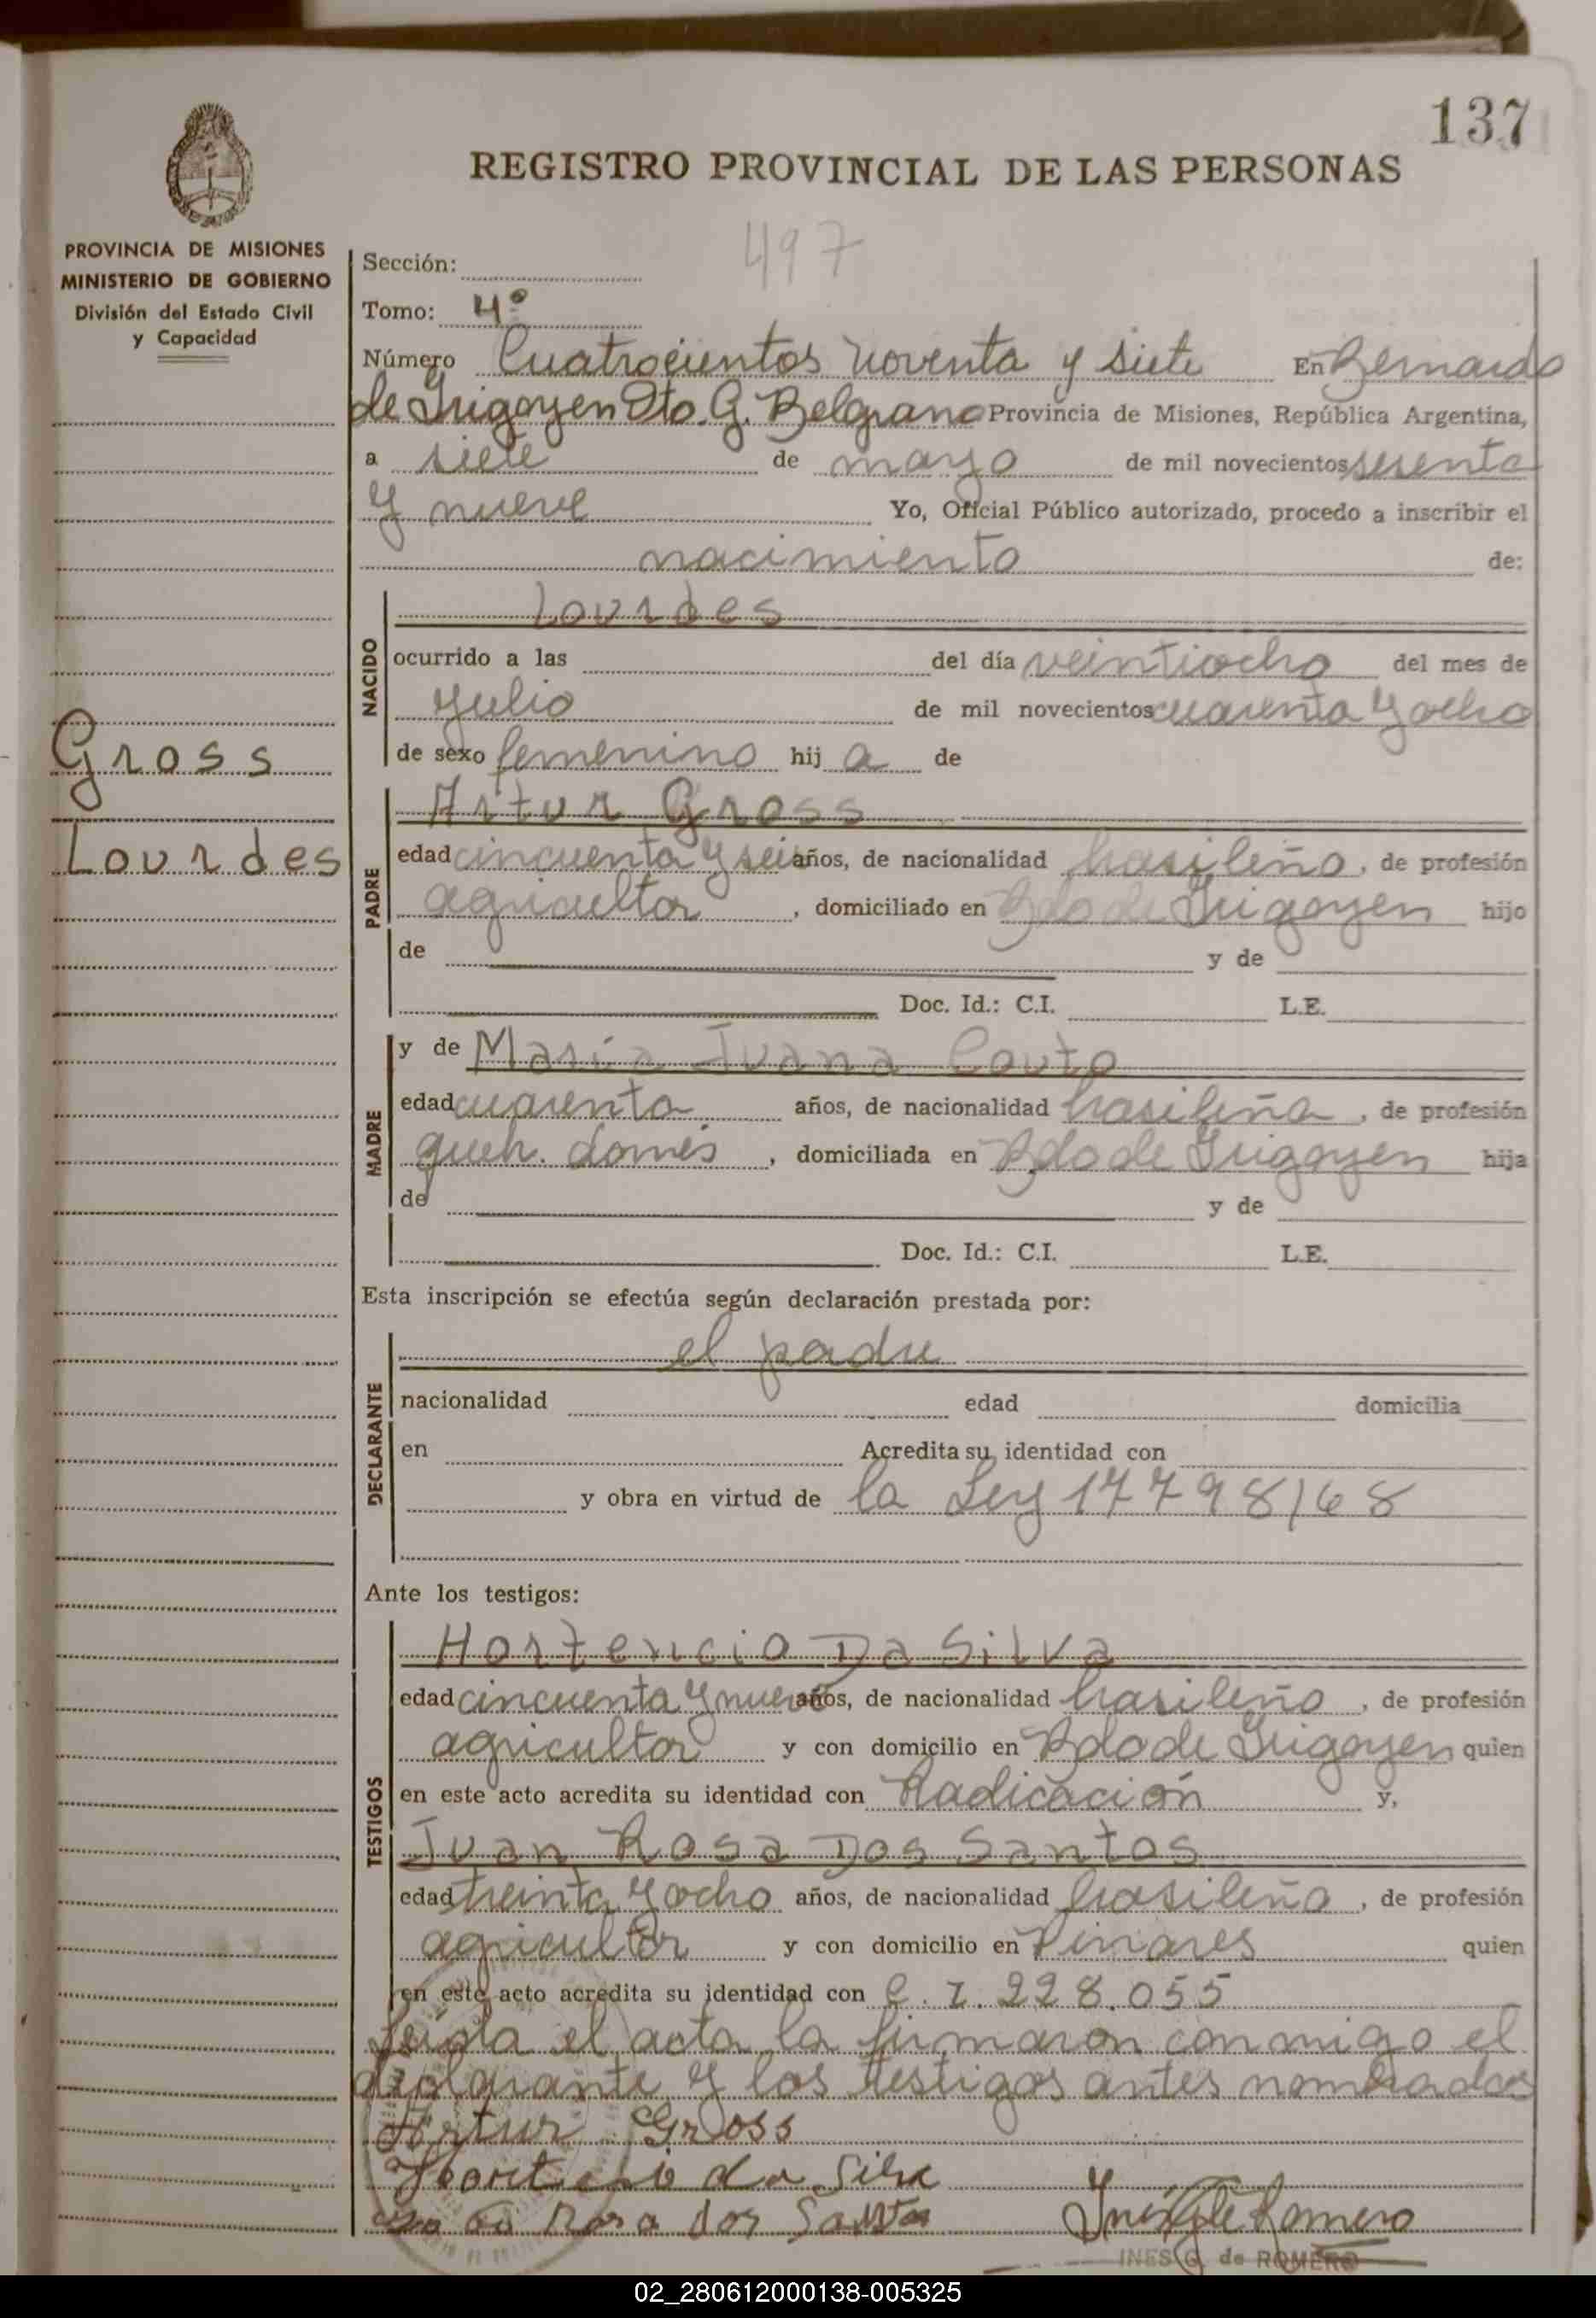 137
REGISTRO PROVINCIAL DE LAS PERSONAS
PROVINCIA DE MISIONES
MINISTERIO DE GOBIERNO
División del Estado Civil
y Capacidad
497
Sección:
Tomo: 4º
Número Cuatrocientos noventa y siete En Bernardo
de Irigoyen Dto. G. Belgrano Provincia de Misiones, República Argentina,
a siete de mayo de mil novecientos sesenta
y nueve Yo, Oficial Público autorizado, procedo a inscribir el
nacimiento de:
NACIDO
Lourdes
ocurrido a las del día veintiocho del mes de
julio de mil novecientos cuarenta y ocho
de sexo femenino hij a de
Gross
Lourdes
PADRE
Artur Gross
edad cincuenta y seis años, de nacionalidad brasileño, de profesión
agricultor, domiciliado en Bdo de Irigoyen hijo
de y de
Doc. Id.: C.I. L.E.
MADRE
y de María Juana Couto
edad cuarenta años, de nacionalidad brasileña, de profesión
queh. domés, domiciliada en Bdo de Irigoyen hija
de y de
Doc. Id.: C.I. L.E.
Esta inscripción se efectúa según declaración prestada por:
DECLARANTE
el padre
nacionalidad edad domicilia
en Acredita su identidad con
y obra en virtud de la Ley 17798/68
Ante los testigos:
TESTIGOS
Hortencio Da Silva
edad cincuenta y nueve años, de nacionalidad brasileño, de profesión
agricultor y con domicilio en Bdo de Irigoyen quien
en este acto acredita su identidad con Radicación y,
Juan Rosa Dos Santos
edad treinta y ocho años, de nacionalidad brasileño, de profesión
agricultor y con domicilio en Pinares quien
en este acto acredita su identidad con C.I. 228.055
Leída el acta la firmaron conmigo el
declarante y los testigos antes nombrados
Artur Gross
da Silva
Rosa dos Santos
INES G. de ROMERO
02_280612000138-005325